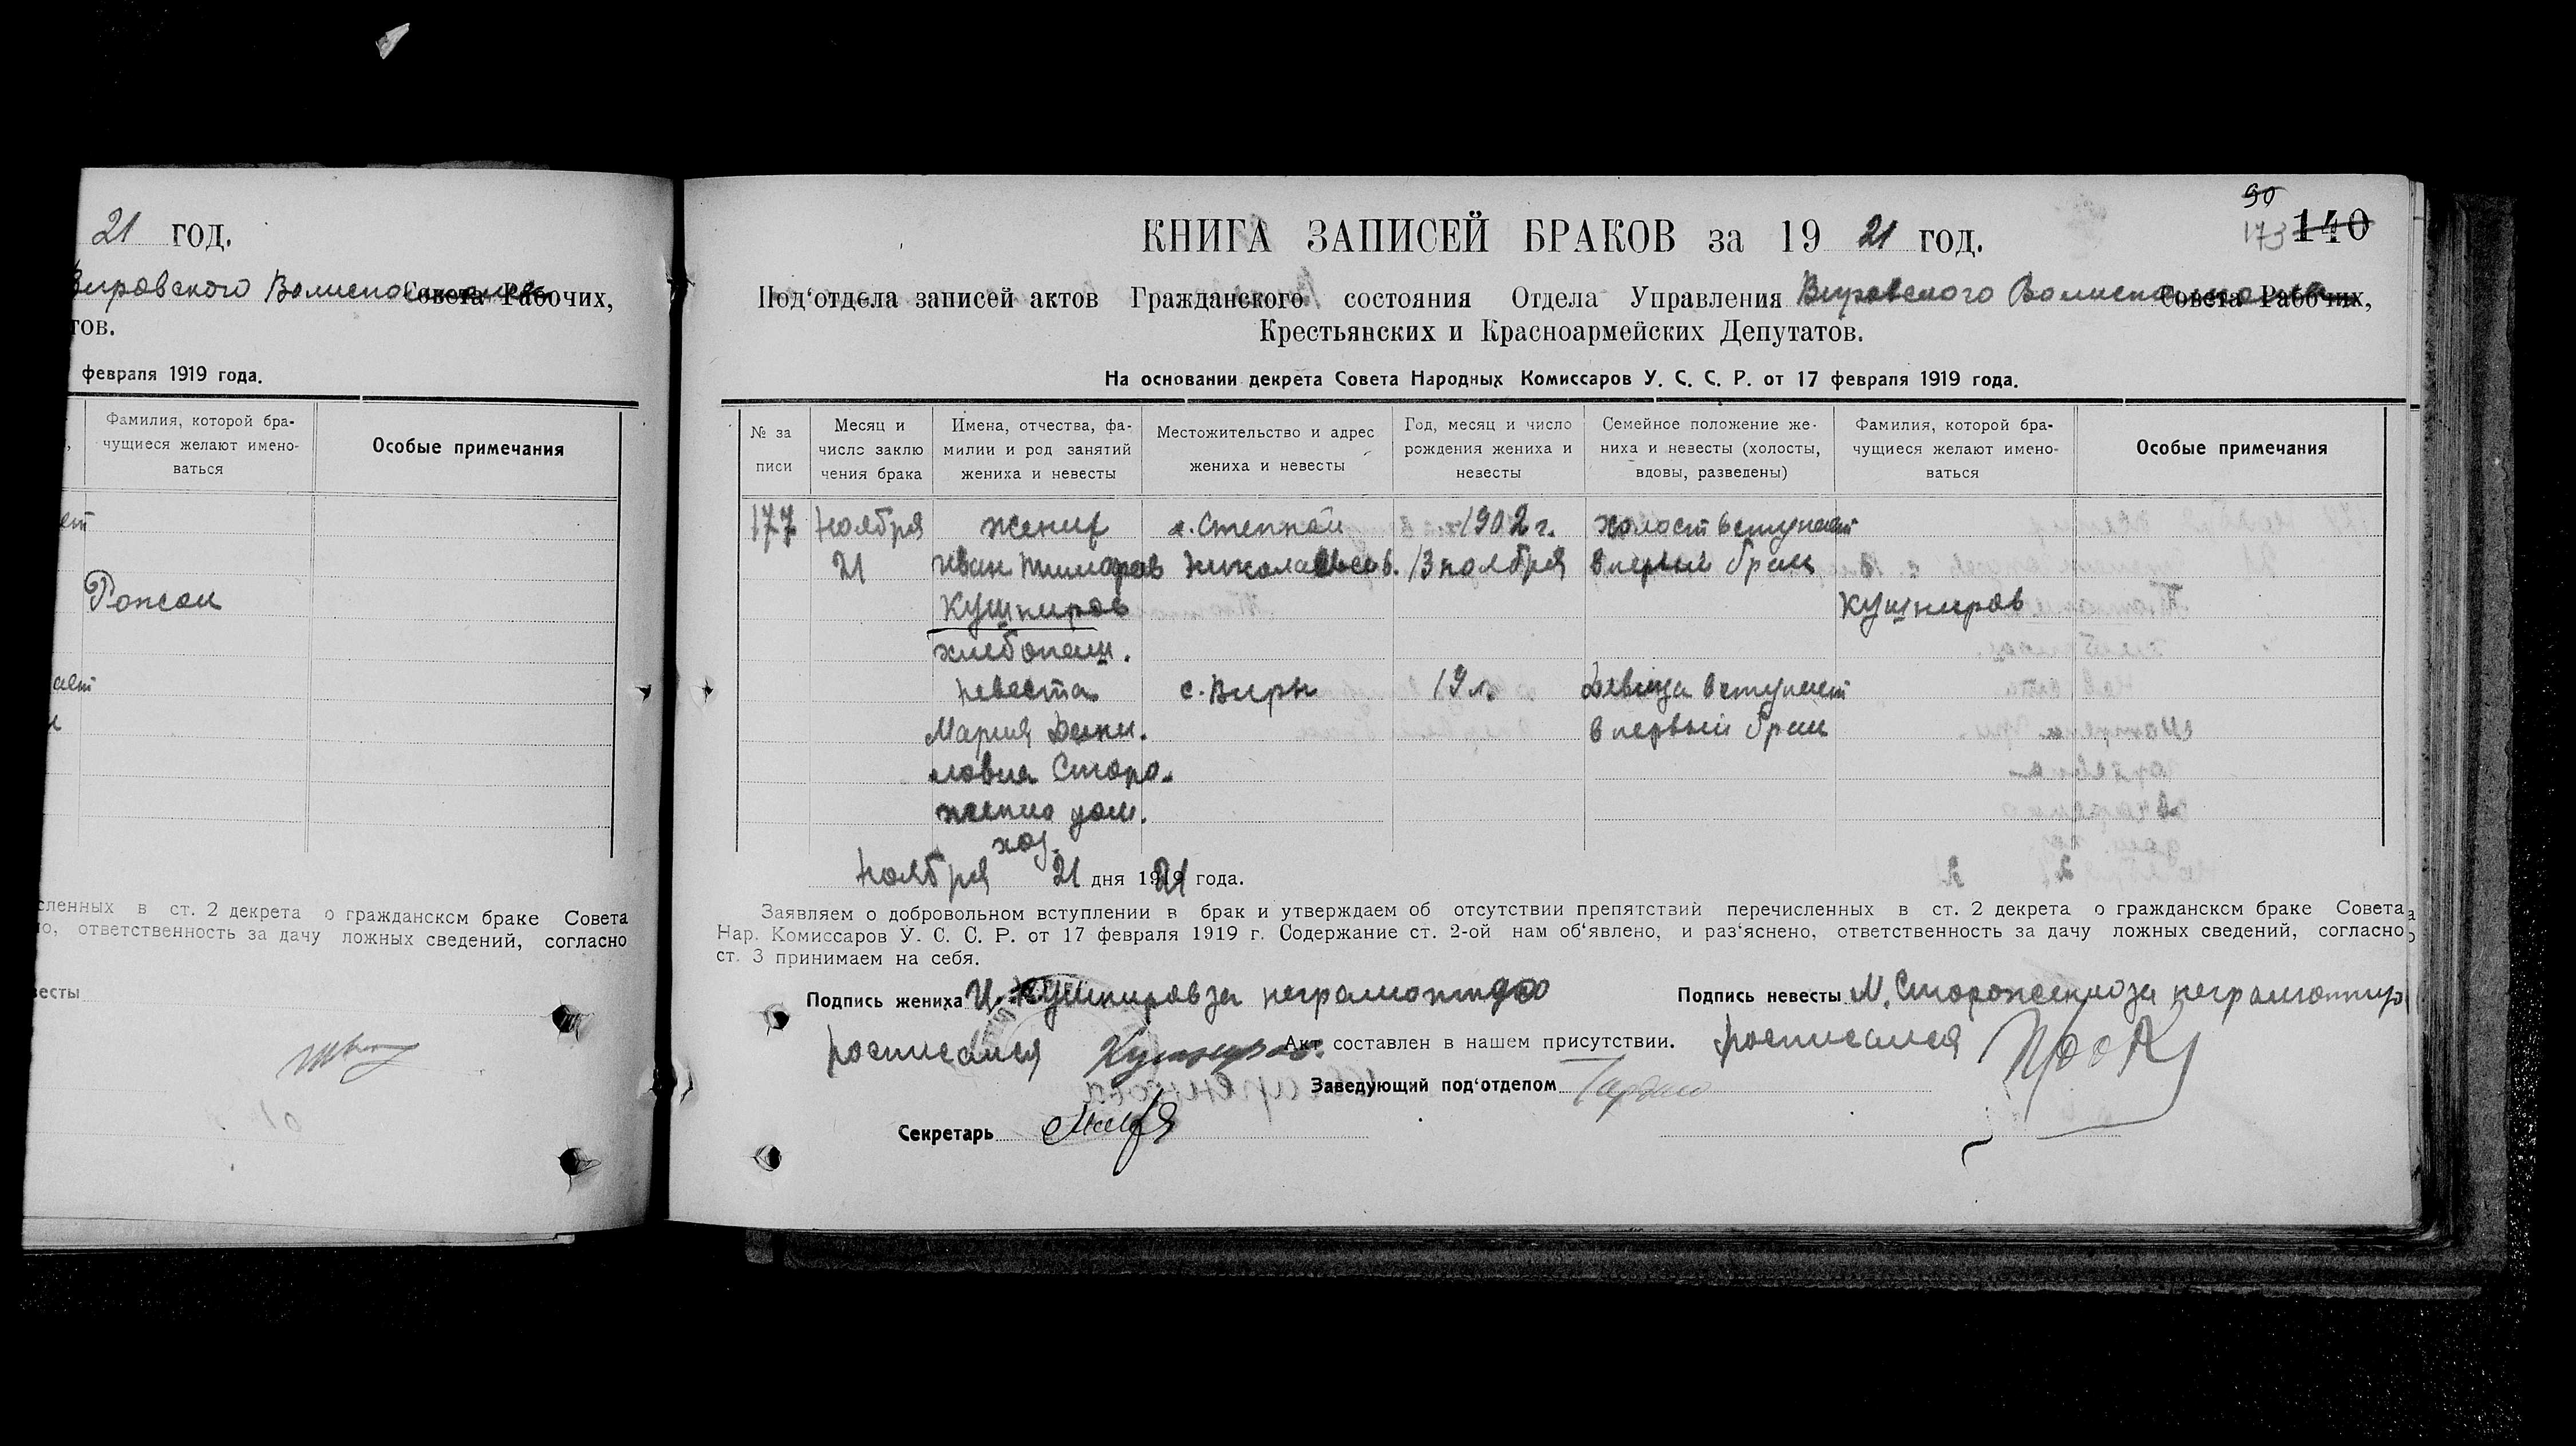 21 год.
Вировского Волисполкома Совета Рабочих,
тов.
февраля 1919 года.
Фамилия, которой бра-
чущиеся желают имено-
ваться
Особые примечания
Рожай
сленных в ст. 2 декрета о гражданском браке Совета
но, ответственность за дачу ложных сведений, согласно
весты
90
173 140
КНИГА ЗАПИСЕЙ БРАКОВ за 19 21 год.
Под‘отдела записей актов Гражданского состояния Отдела Управления Вировского Волисполкома Совета Рабочих,
Крестьянских и Красноармейских Депутатов.
На основании декрета Совета Народных Комиссаров У. С. С. Р. от 17 февраля 1919 года.
№ за
писи
Месяц и
число заклю
чения брака
Имена, отчества, фа-
милии и род занятий
жениха и невесты
Местожительство и адрес
жениха и невесты
Год, месяц и число
рождения жениха и
невесты
Семейное положение же-
ниха и невесты (холосты,
вдовы, разведены)
Фамилия, которой бра-
чущиеся желают имено-
ваться
Особые примечания
177 Ноября жених х. Степной 1902 г. холост вступает
21 Иван Николаев. 13 ноября в первый брак
Кушниров Кушниров
хлебопаш.
невеста с. Виры 19 л. Девица вступает
Мария Дани. в первый брак
ловна Сторо.
женко дом.
хоз.
Ноября 21 дня 1921 года.
Заявляем о добровольном вступлении в брак и утверждаем об отсутствии препятствий перечисленных в ст. 2 декрета о гражданском браке Совета
Нар. Комиссаров У. С. С. Р. от 17 февраля 1919 г. Содержание ст. 2-ой нам об‘явлено, и раз‘яснено, ответственность за дачу ложных сведений, согласно
ст. 3 принимаем на себя.
Подпись жениха И. Кушниров за неграмотного Подпись невесты М. Стороженко за неграмотную
росписался Кушниров. Акт составлен в нашем присутствии. росписался
Заведующий под‘отделом
Секретарь